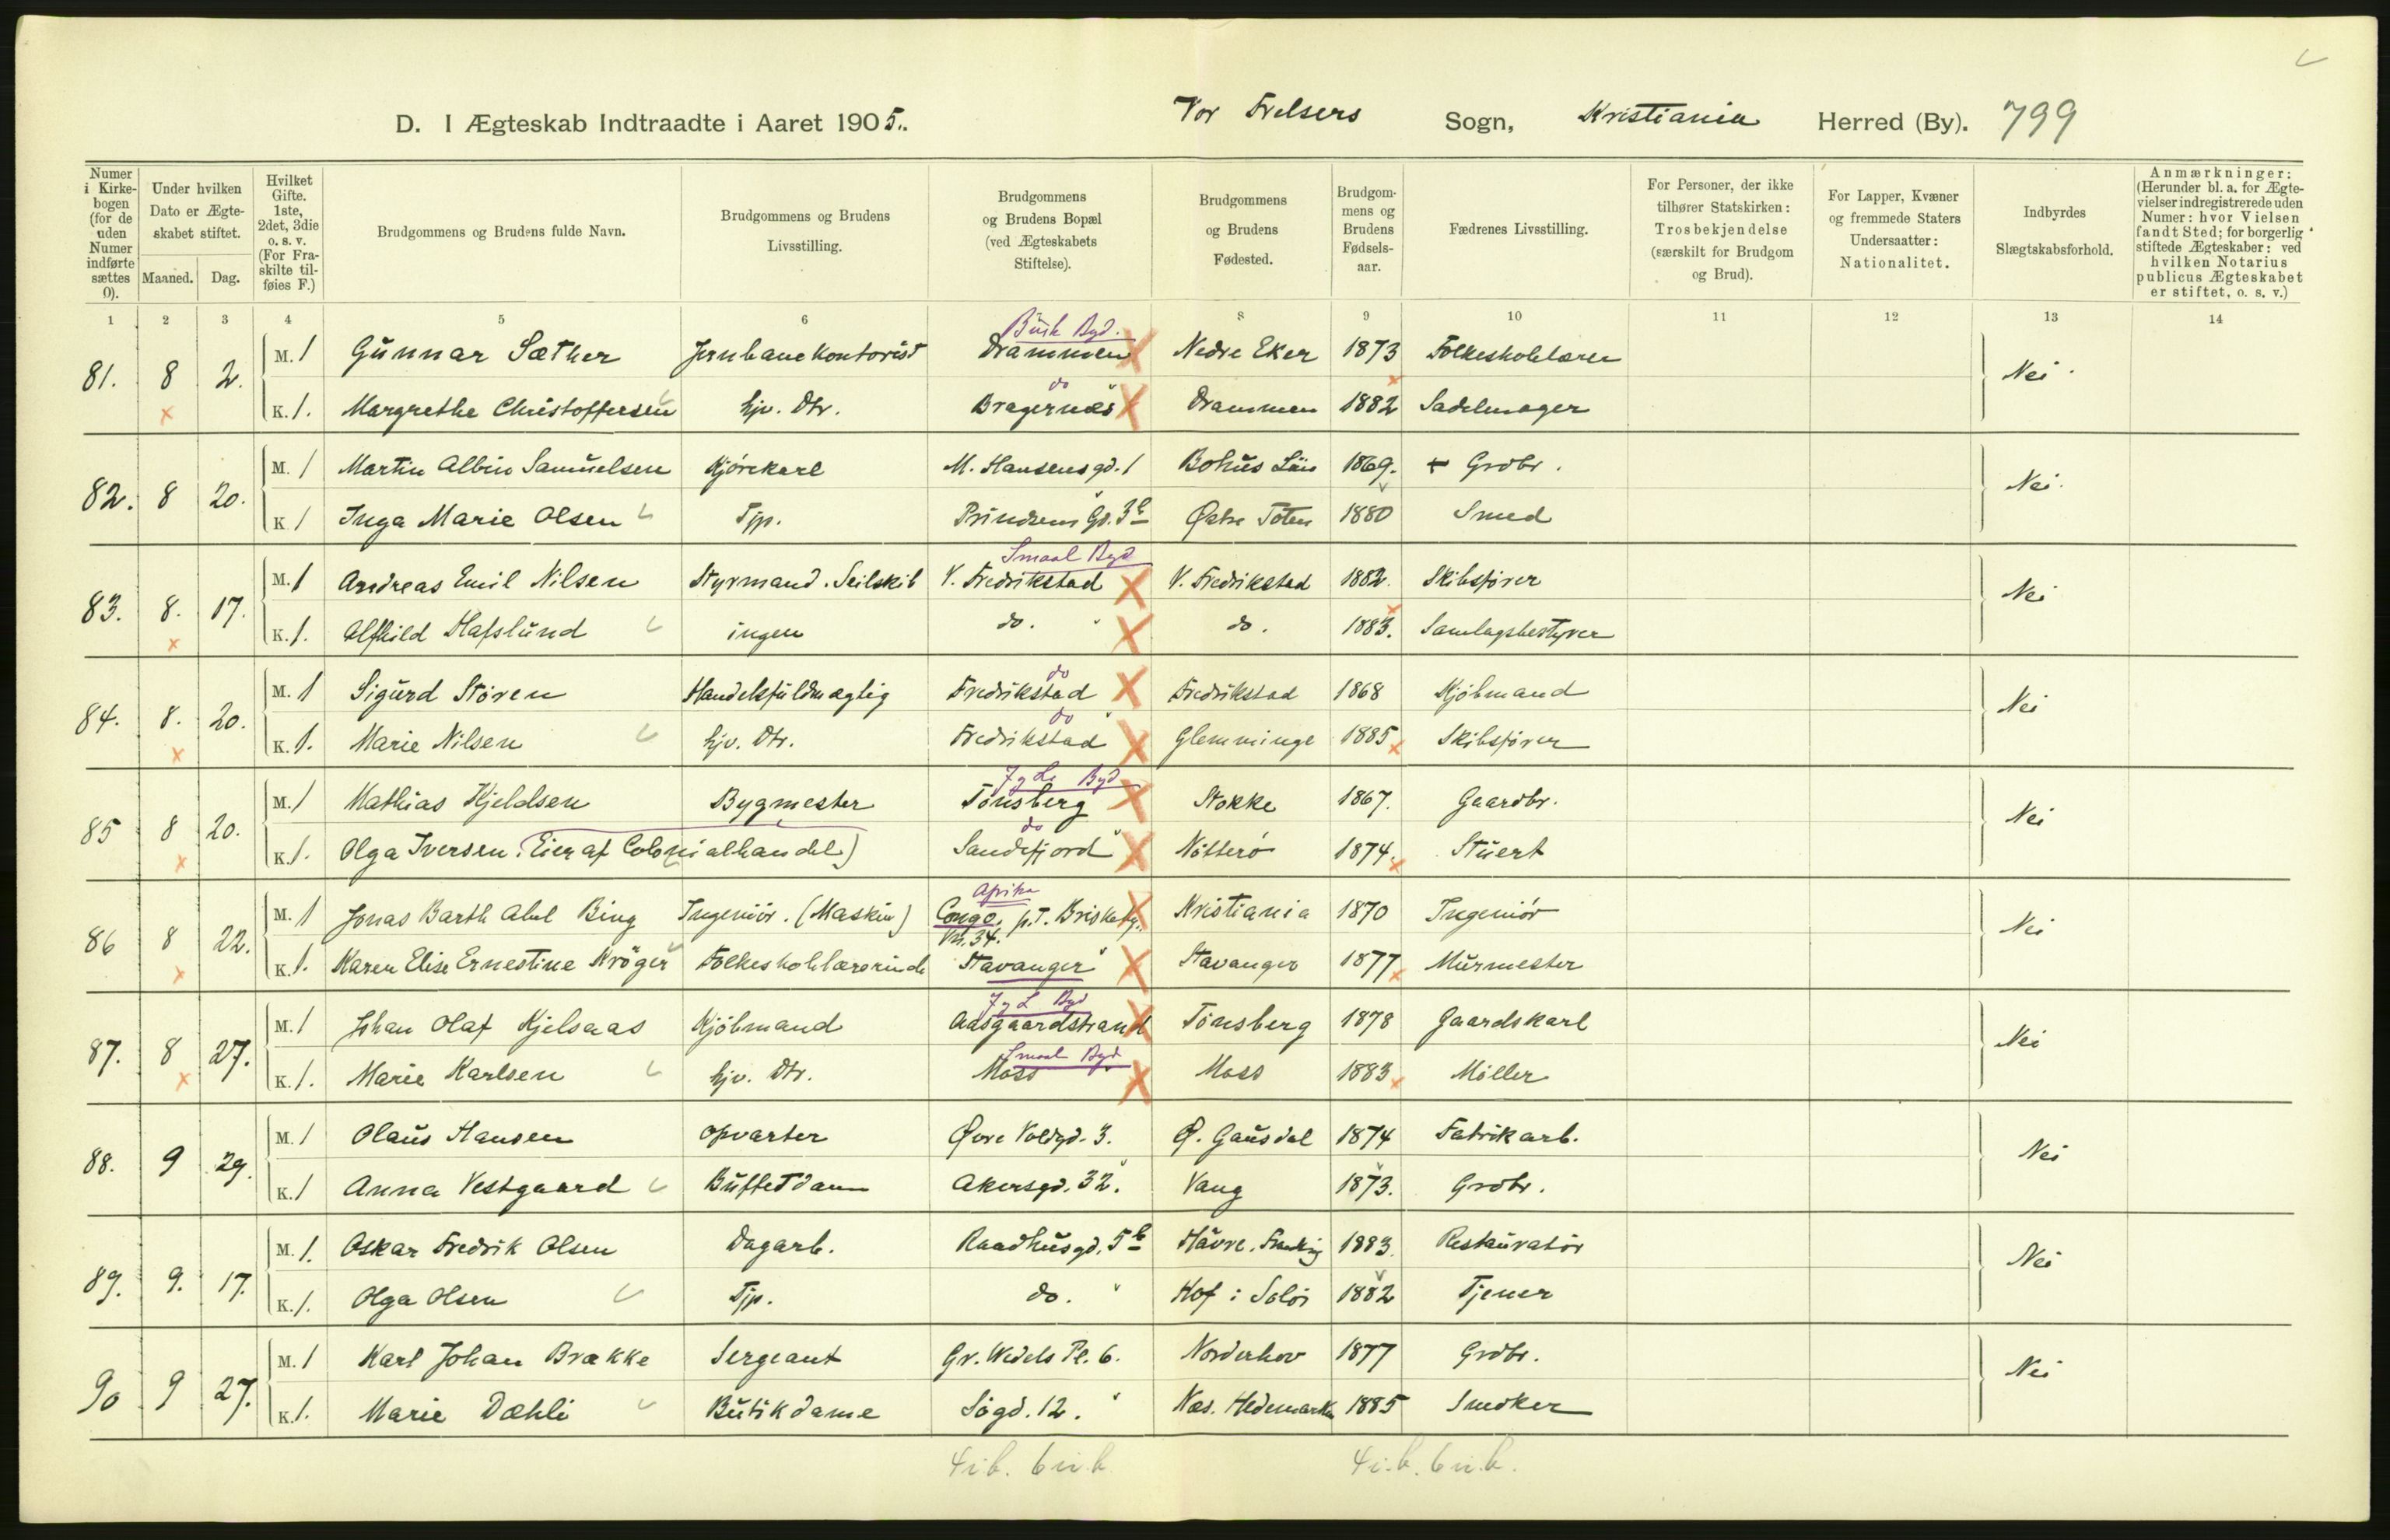 D. I Ægteskab Indtraadte i Aaret 1905. Vor Frelsers Sogn, Kristiania Herred (By). 799
Numer i Kirkebogen (for de uden Numer indførte sættes 0).
Under hvilken Dato er Ægteskabet stiftet.
Maaned. Dag.
Hvilket Gifte. 1ste, 2det, 3die o. s. v. (For Fraskilte tilføies F.)
Brudgommens og Brudens fulde Navn.
Brudgommens og Brudens Livsstilling.
Brudgommens og Brudens Bopæl (ved Ægteskabets Stiftelse).
Brudgommens og Brudens Fødested.
Brudgommens og Brudens Fødselsaar.
Fædrenes Livsstilling.
For Personer, der ikke tilhører Statskirken: Trosbekjendelse (særskilt for Brudgom og Brud).
For Lapper, Kvæner og fremmede Staters Undersaatter: Nationalitet.
Indbyrdes Slægtskabsforhold.
Anmærkninger: (Herunder bl. a. for Ægtevielser indregistrerede uden Numer: hvor Vielsen fandt Sted; for borgerlig stiftede Ægteskaber: ved hvilken Notarius publicus Ægteskabet er stiftet, o. s. v.)
1 2 3 4 5 6 8 9 10 11 12 13 14
Busk Byd.
81. 8 2. M. 1 Gunnar Sæther Jernbanekontorist Drammen Nedre Eker 1873 Folkeskolelærer Nei
do
K. 1. Margrethe Christoffersen hjv. Dtr. Bragernæs Drammen 1882 Sadelmager
82. 8 20. M. 1 Martin Albin Samuelsen Kjørekarl M. Hansens gd. 1 Bohus Län 1869. Grdbr. Nei.
K. 1 Inga Marie Olsen Tjp. Prindsens Gd. 3 Østre Toten 1880 Smed
Smaal Byd
83. 8. 17. M. 1 Andreas Emil Nilsen Styrmand. Seilskib V. Fredrikstad V. Fredrikstad 1882. Skibsfører Nei
K. 1. Alfhild Hafslund ingen do. do. 1883. Samlagsbestyrer
do
84. 8. 20. M. 1 Sigurd Støren Handelsfuldmægtig Fredrikstad Fredrikstad 1868 Kjøbmand Nei
do
K. 1. Marie Nilsen hjv. Dtr. Fredrikstad Glemminge 1885 Skibsfører
J g L Byd
85 8 20. M. 1 Mathias Kjeldsen Bygmester Tönsberg Stokke 1867. Gaardbr. Nei
do
K. 1. Olga Iversen. (Eier af Colonialhandel) Sandefjord Nötterö 1874. Stuert
Afrika
86 8 22. M. 1 Jonas Barth Abel Bing Ingeniör. (Maskin) Congo. p.T. Briskebyv. Kristiania 1870 Ingeniör Nei
Vn. 34.
K. 1. Karen Elise Ernestine Kröger Folkeskolelærerinde Stavanger Stavanger 1877 Murmester
J g L Byd
87. 8 27. M. 1 Johan Olaf Kjelsaas Kjöbmand Aasgaardstrand Tönsberg 1878 Gaardskarl Nei
Smaal Byd
K. 1. Marie Karlsen hjv. Dtr. Moss Moss 1883 Möller
88. 9 29. M. 1 Olaus Hansen Opvarter Øvre Voldgd. 3. Ø. Gausdal 1874 Fabrikarb. Nei
K. 1 Anna Vestgaard Buffetdame Akersgd. 32. Vang 1873. Grdbr.
89. 9. 17. M. 1. Oskar Fredrik Olsen Dagarb. Raadhusgd. 5 b Hâvre. Frankrig 1883. Restauratör Nei
K. 1. Olga Olsen Tjp. do. Hof i Solör 1882 Tjener
90 9 27. M. 1 Karl Johan Brække Sergeant Gr. Wedels Pl. 6. Norderhov 1877 Grdbr. Nei
K. 1. Marie Dæhli Butikdame Søgd. 12. Næs. Hedemarken 1885 Snedker
4 i.b. 6 u.b. 4 i.b. 6 u.b.